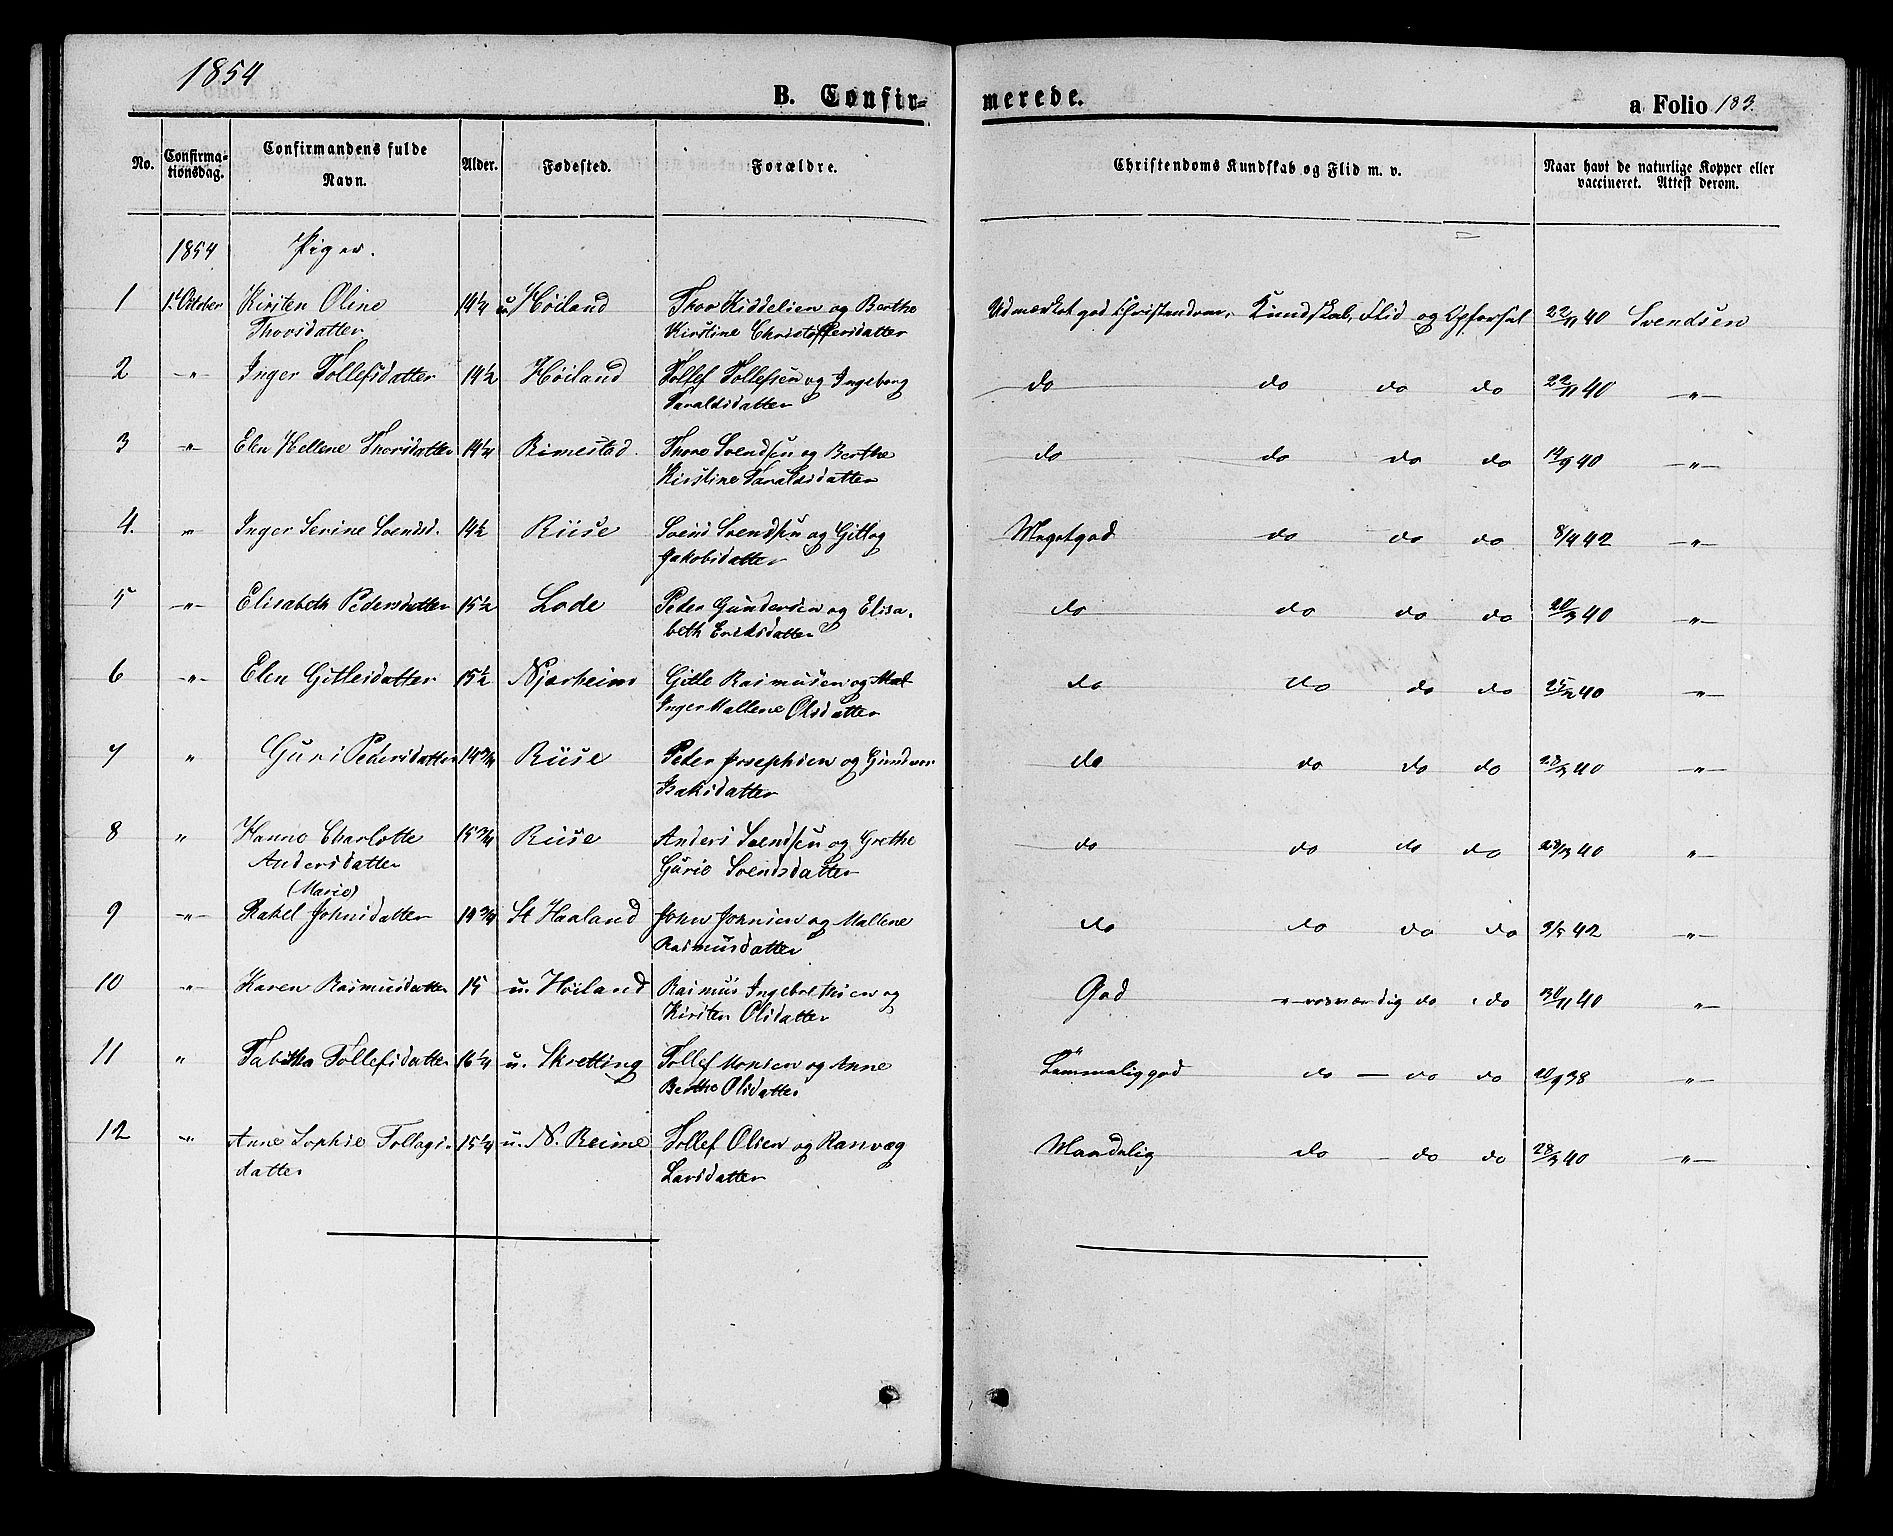 1854
B. Confir-
merede.
a Folio 183.
No.
Confirma-
tionsdag.
Confirmandens fulde
Navn.
Alder.
Fødested.
Forældre.
Christendoms Kundskab og Flid m. v.
Naar havt de naturlige Kopper eller
vaccineret. Attest derom.
1854 Piger.
1 1. October Kirsten Oline 14¼ u. Høiland Thor Kiddelsen og Berthe Udmærket god Christendoms Kundskab, Flid og Opførsel 22/11 40 Svendsen
Thorsdatter Kirstine Christoffersdatter
2 -"- Inger Tollefsdatter 14½ Høiland Tollef Tollefsen og Ingeborg do do do do 22/11 40 -"-
Taraldsdatter
3 -"- Elen Hellene Thorsdatter 14¼ Rimestad Thore Svendsen og Berthe do do do do 14/9 40 -"-
Kirstine Taraldsdatter
4. " Inger Serine Svendsd. 14½ Riise Svend Svendsen og Gitlog Meget god do do do 8/4 42 -"-
Jakobsdatter
5 -"- Elisabeth Pedersdatter 15½ Lode Peder Gundersen og Elisa- do do do do 20/3 40 -"-
beth Eriksdatter
6 -"- Elen Gitlesdatter 15½ Njærheim Gitle Rasmusen og Mal do do do do 25/2 40 -"-
Inger Mallene Olsdatter
7 " Guri Pedersdatter 14¾ Riise Peder Josephsen og Gundvor do do do do 23/3 40 -"-
Isaksdatter
8 " Hanne Charlotte 15¾ Riise Anders Svendsen og Grethe do do do do 23/3 40 -"-
Andersdatter Gurie Svendsdatter
(Marie)
9 -"- Rakel Johnsdatter 14¾ St Haaland John Johnsen og Mallene do do do do 3/5 42 -"-
Rasmusdatter
10 -"- Karen Rasmusdatter 15 u. Høiland Rasmus Ingebrethsen og God rosværdig do do 30/11 40 -"-
Kirsten Olsdatter
11 " Tabitha Tollefsdatter 16¼ u. Skretting Tollef Monsen og Anne Temmelig god do - do do 20/9 38 -"-
Berthe Olsdatter
12 -"- Anne Sophie Tollags- 15¼ u. N. Reime Tollef Olsen og Ranvæg Maadelig do do do 28/3 40 -"-
datter Larsdatter